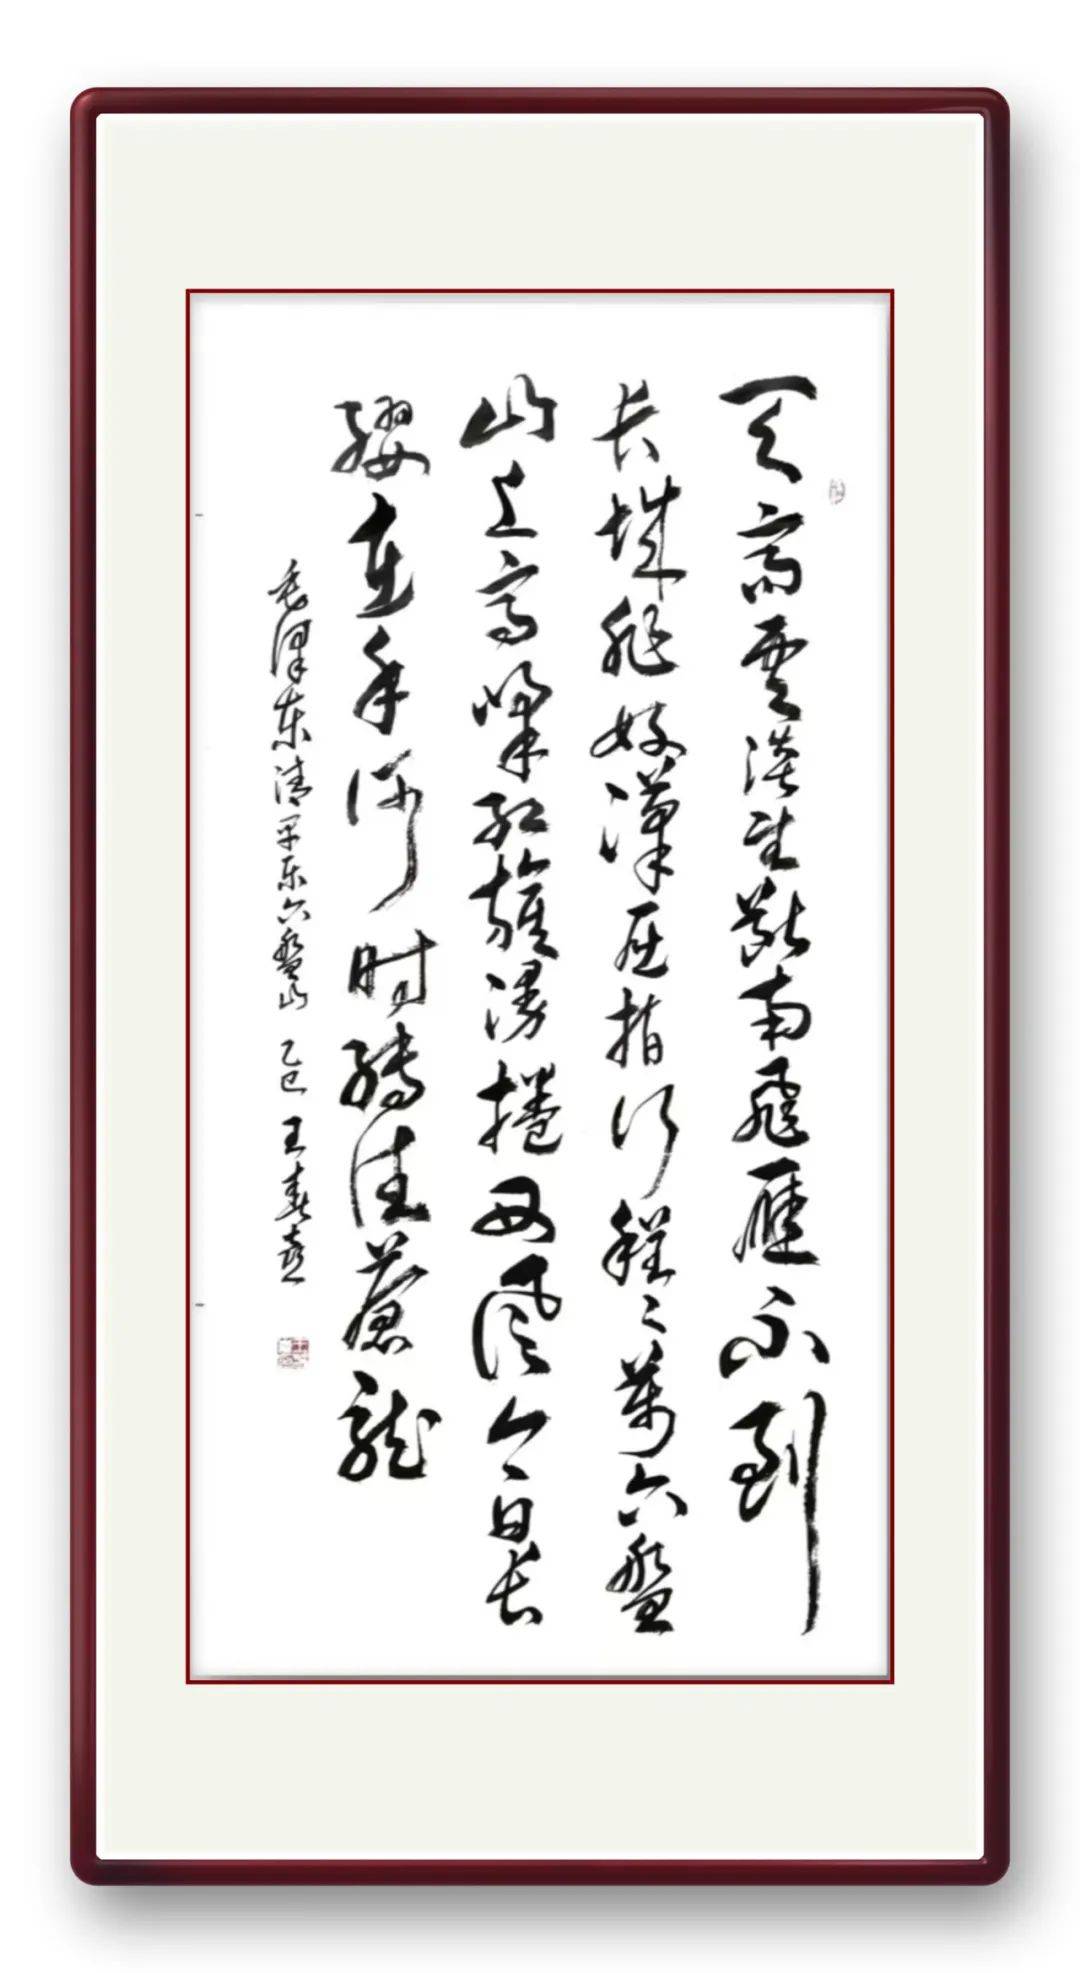 天高雲淡望斷南飛雁不到
长城非好漢屈指行程二萬六盤
山上高峰紅旗漫捲西風今日长
纓在手何时縛住蒼龍
毛澤东清平乐六盤山 乙巳 王春